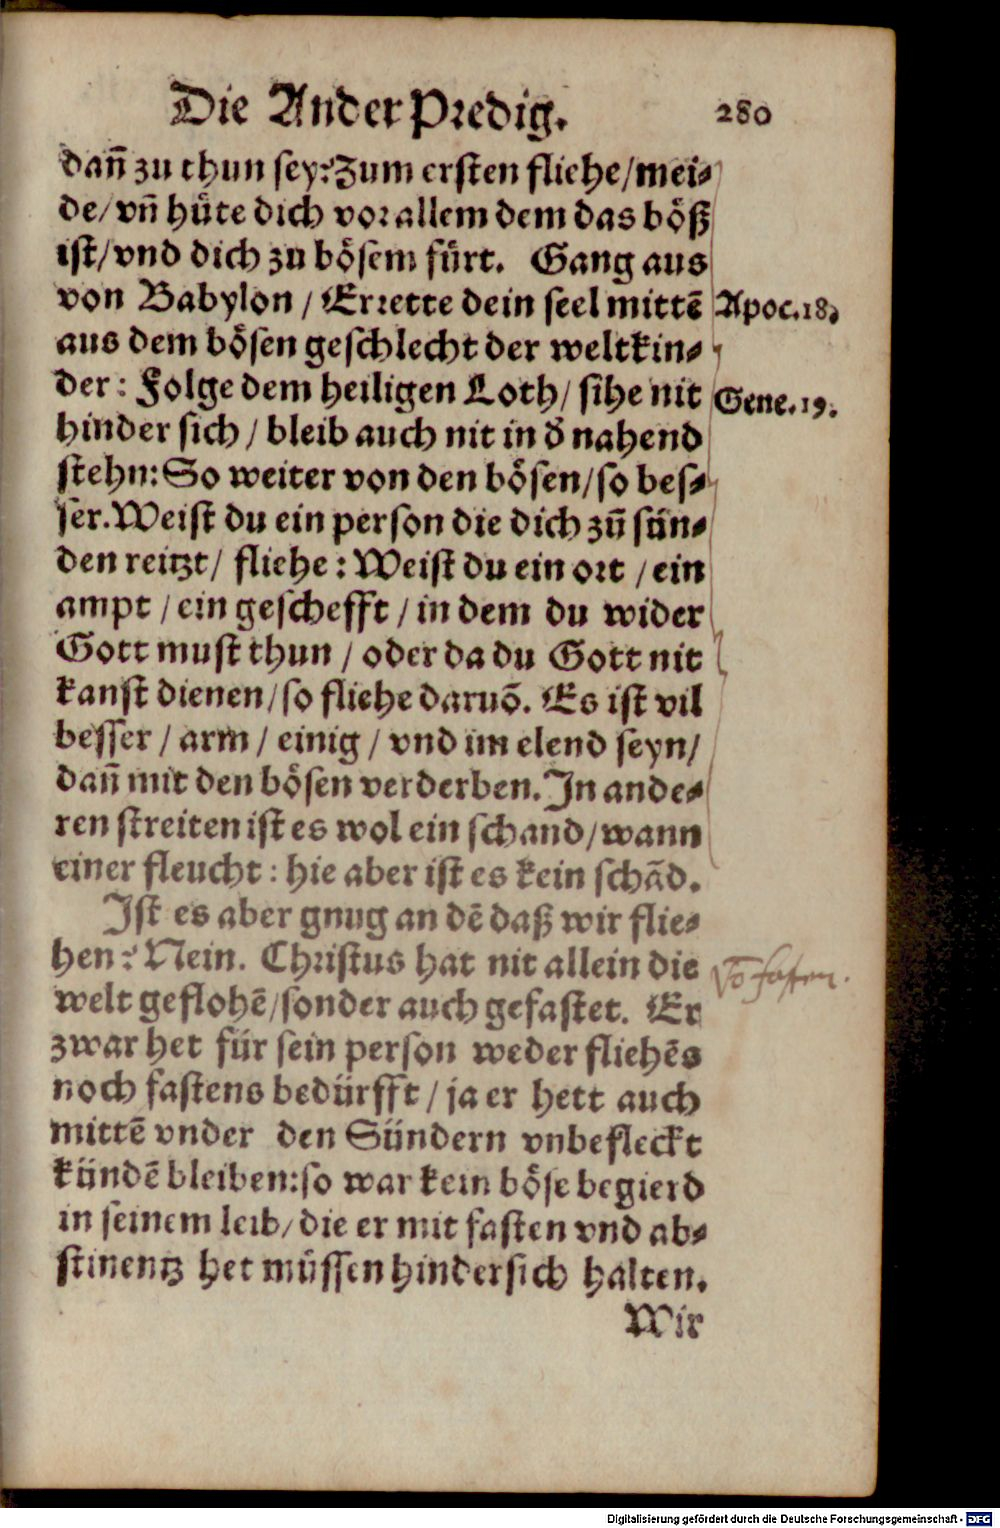 Die Ander Predig. 280
dañ zu thun sey? Zum ersten fliehe/mei-
de/vñ hüte dich vor allem dem das böß
ist/vnd dich zu bösem fürt. Gang aus
von Babylon / Errette dein seel mittē Apoc.18.
aus dem bösen geschlecht der weltkin-
der: Folge dem heiligen Loth/ sihe nit Gene.19.
hinder sich / bleib auch nit in d̄ nahend
stehn: So weiter von den bösen/so bes-
ser. Weist du ein person die dich zū sün-
den reitzt/ fliehe: Weist du ein ort / ein
ampt / ein geschefft / in dem du wider
Gott must thun / oder da du Gott nit
kanst dienen/so fliehe daruō. Es ist vil
besser / arm / einig / vnd im elend seyn/
dañ mit den bösen verderben. In ande-
ren streiten ist es wol ein schand/wann
einer fleucht: hie aber ist es kein schād.
Ist es aber gnug an dē daß wir flie-
hen? Nein. Christus hat nit allein die
Vō fasten.
welt geflohē/sonder auch gefastet. Er
zwar het für sein person weder fliehēs
noch fastens bedürfft / ja er hett auch
mittē vnder den Sündern vnbefleckt
kündē bleiben: so war kein böse begierd
in seinem leib/die er mit fasten vnd ab-
stinentz het müssen hindersich halten.
Wir
Digitalisierung gefördert durch die Deutsche Forschungsgemeinschaft - DFG